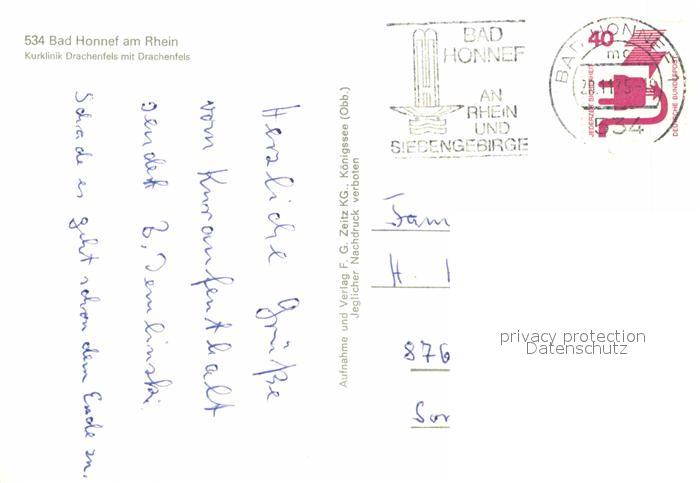 534 Bad Honnef am Rhein
Kurklinik Drachenfels mit Drachenfels
Herzliche Grüße
vom Kuraufenthalt
sendet
Schade es geht schon dem Ende zu.
Aufnahme und Verlag F. G. Zeitz KG., Königssee (Obb.)
Jeglicher Nachdruck verboten
BAD
HONNEF
AN
RHEIN
UND
SIEBENGEBIRGE
BAD HONNEF 1
mc
534
40
JEDERZEIT SICHERHEIT
DEUTSCHE BUNDESPOST
Fam
H.
876
privacy protection
Datenschutz